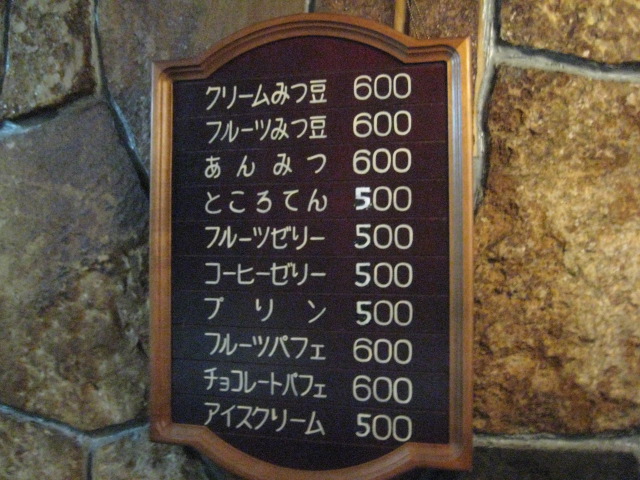 クリームみつ豆 600
フルーツみつ豆 600
あんみつ 600
ところてん 500
フルーツゼリー 500
コーヒーゼリー 500
プリン 500
フルーツパフェ 600
チョコレートパフェ 600
アイスクリーム 500